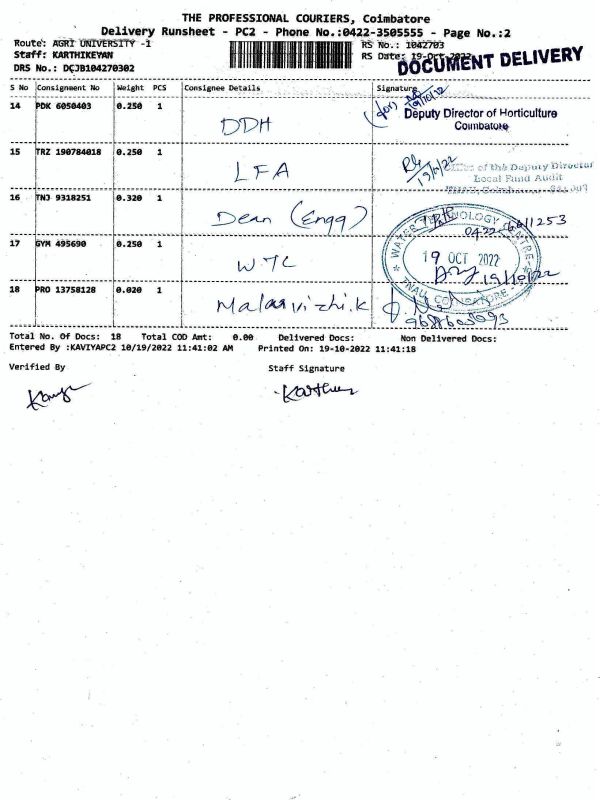 THE PROFESSIONAL COURIERS, Coimbatore
Delivery Runsheet - PC2 - Phone No.:0422-3505555 - Page No.:2
Route: AGRI UNIVERSITY -1
RS No.: 1042703
Staff: KARTHIKEYAN
RS Date: 19-Oct-2022
DRS No.: DCJB104270302
DOCUMENT DELIVERY
S No Consignment No Weight PCS Consignee Details Signature
14 PDK 6050403 0.250 1 DDH
19/10/22
Deputy Director of Horticulture
Coimbatore
15 TRZ 190784018 0.250 1 LFA
of the Deputy Director
Local Fund Audit
16 TNJ 9318251 0.320 1 Dean (Engg)
0422-6611253
17 GYM 495690 0.250 1 WTC
WATER TECHNOLOGY CENTRE
19 OCT 2022
19/10/22
TNAU, COIMBATORE
18 PRO 13758128 0.020 1 Malarvizhi.k
Total No. Of Docs: 18 Total COD Amt: 0.00 Delivered Docs: Non Delivered Docs:
Entered By :KAVIYAPC2 10/19/2022 11:41:02 AM Printed On: 19-10-2022 11:41:18
Verified By Staff Signature
Karthik